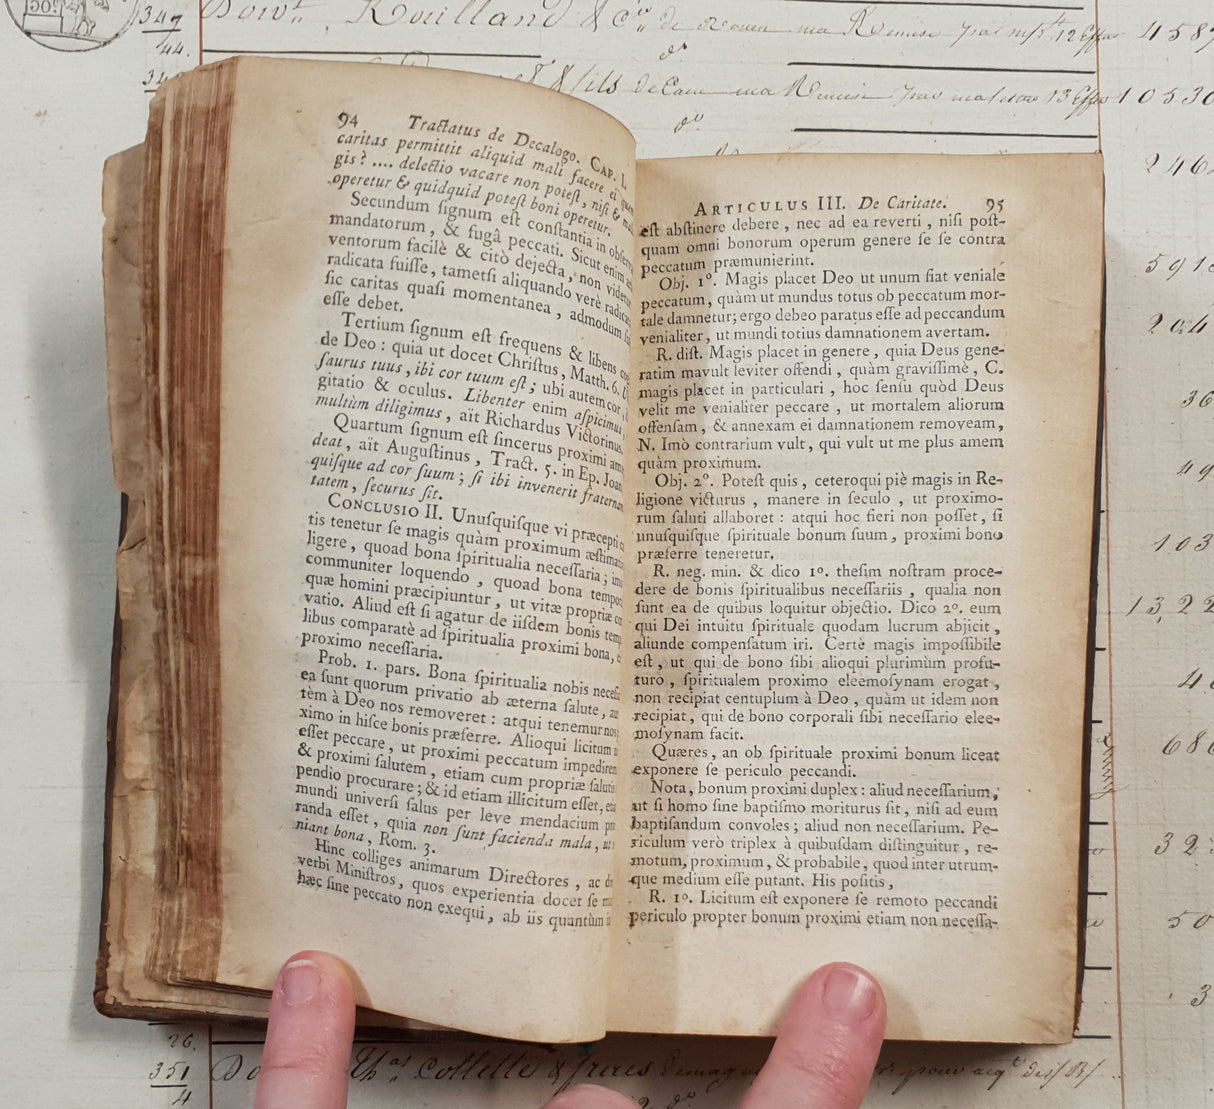 94 Tractatus de Decalogo. CAP. I.
caritas permittit aliquid mali facere ei quem
gis? .... delectio vacare non poteſt, niſi & mali
operetur & quidquid poteſt boni operetur.
Secundum ſignum eſt conſtantia in obſerv
mandatorum, & fugâ peccati. Sicut enim
ventorum facilè & citò dejecta, non videtur
radicata fuiſſe, tametſi aliquando verè radica
ſic caritas quaſi momentanea, admodum
eſſe debet.
Tertium ſignum eſt frequens & libens co
de Deo: quia ut docet Chriſtus, Matth. 6.
ſaurus tuus, ibi cor tuum eſt; ubi autem cor,
gitatio & oculus. Libenter enim aſpicimus
multùm diligimus, aït Richardus Victorinus.
Quartum ſignum eſt ſincerus proximi am
deat, aït Auguſtinus, Tract. 5. in Ep. Joan
quiſque ad cor ſuum; ſi ibi invenerit fraterna
tatem, ſecurus ſit.
CONCLUSIO II. Unuſquiſque vi præcepti c
tis tenetur ſe magis quàm proximum æſtimar
ligere, quoad bona ſpiritualia neceſſaria; im
communiter loquendo, quoad bona tempo
quæ homini præcipiuntur, ut vitæ propriæ co
vatio. Aliud eſt ſi agatur de iiſdem bonis tem
libus comparatè ad ſpiritualia proximi bona,
proximo neceſſaria.
Prob. 1. pars. Bona ſpiritualia nobis neceſſa
ea ſunt quorum privatio ab æterna ſalute, au
tèm à Deo nos removeret: atqui tenemur nos
ximo in hiſce bonis præferre. Alioqui licitum
eſſet peccare, ut proximi peccatum impedirem
& proximi ſalutem, etiam cum propriæ ſalutis
pendio procurare; & id etiam illicitum eſſet, etſi
mundi univerſi ſalus per leve mendacium pro
randa eſſet, quia non ſunt facienda mala, ut
niant bona, Rom. 3.
Hinc colliges animarum Directores, ac di
verbi Miniſtros, quos experientia docet ſe
hæc ſine peccato non exequi, ab iis quantùm
ARTICULUS III. De Caritate. 95
eſt abſtinere debere, nec ad ea reverti, niſi poſt-
quam omni bonorum operum genere ſe ſe contra
peccatum præmunierint.
Obj. 1°. Magis placet Deo ut unum fiat veniale
peccatum, quàm ut mundus totus ob peccatum mor-
tale damnetur; ergo debeo paratus eſſe ad peccandum
venialiter, ut mundi totius damnationem avertam.
R. diſt. Magis placet in genere, quia Deus gene-
ratim mavult leviter offendi, quàm graviſſimè, C.
magis placet in particulari, hoc ſenſu quòd Deus
velit me venialiter peccare, ut mortalem aliorum
offenſam, & annexam ei damnationem removeam,
N. Imò contrarium vult, qui vult ut me plus amem
quàm proximum.
Obj. 2°. Poteſt quis, ceteroqui piè magis in Re-
ligione victurus, manere in ſeculo, ut proximo-
rum ſaluti allaboret: atqui hoc fieri non poſſet, ſi
unuſquiſque ſpirituale bonum ſuum, proximi bono
præferre teneretur.
R. neg. min. & dico 1°. theſim noſtram proce-
dere de bonis ſpiritualibus neceſſariis, qualia non
ſunt ea de quibus loquitur objectio. Dico 2°. eum
qui Dei intuitu ſpirituale quodam lucrum abjicit,
aliunde compenſatum iri. Certè magis impoſſibile
eſt, ut qui de bono ſibi alioqui plurimùm profu-
turo, ſpiritualem proximo eleemoſynam erogat,
non recipiat centuplum à Deo, quàm ut idem non
recipiat, qui de bono corporali ſibi neceſſario elee-
moſynam facit.
Quæres, an ob ſpirituale proximi bonum liceat
exponere ſe periculo peccandi.
Nota, bonum proximi duplex: aliud neceſſarium,
ut ſi homo ſine baptiſmo moriturus ſit, niſi ad eum
baptiſandum convoles; aliud non neceſſarium. Pe-
riculum verò triplex à quibuſdam diſtinguitur, re-
motum, proximum, & probabile, quod inter utrum-
que medium eſſe putant. His poſitis,
R. 1°. Licitum eſt exponere ſe remoto peccandi
periculo propter bonum proximi etiam non neceſſa-